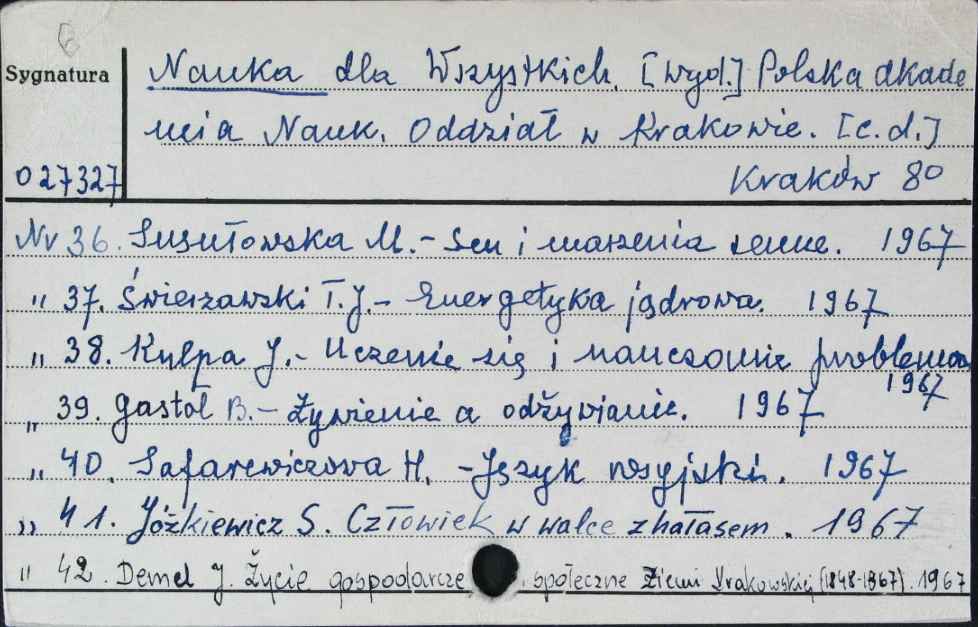 Sygnatura
Nauka dla Wszystkich. [wyd.] Polska Akade
mia Nauk. Oddział w Krakowie. [c.d.]
027327
Kraków 80
Nr 36. Susułowska M. - Sen i marzenia senne. 1967
" 37. Świerszawski T.J. - Energetyka jądrowa. 1967
" 38. Kulpa J. - Uczenie się i nauczanie problemow
1967
" 39. Gastoł B. - Żywienie a odżywianie. 1967
" 40. Safarewiczowa H. - Język rosyjski. 1967
" 41. Jóżkiewicz S. Człowiek w walce z hałasem. 1967
" 42. Demel J. Życie gospodarcze społeczne Ziemi Krakowskiej (1848-1867). 1967